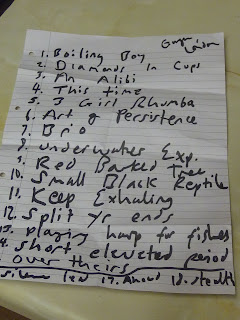 1. Boiling Boy
2. Diamonds In Cups
3. An Alibi
4. This time
5. 3 Girl Rhumba
6. Art of Persistence
7. Brio
8. underwater Exp.
9. Red Barked Tree
10. Small Black Reptile
11. Keep Exhaling
12. Split yr ends
13. playing harp for fishes
14. short elevated period
over theirs
silence 17. Ahead 18. stealth